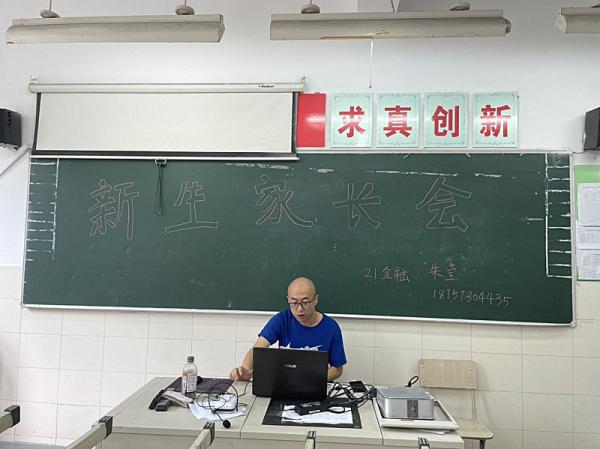 求真创新
新生家长会
21金融 朱莹
18757304435
ASUS